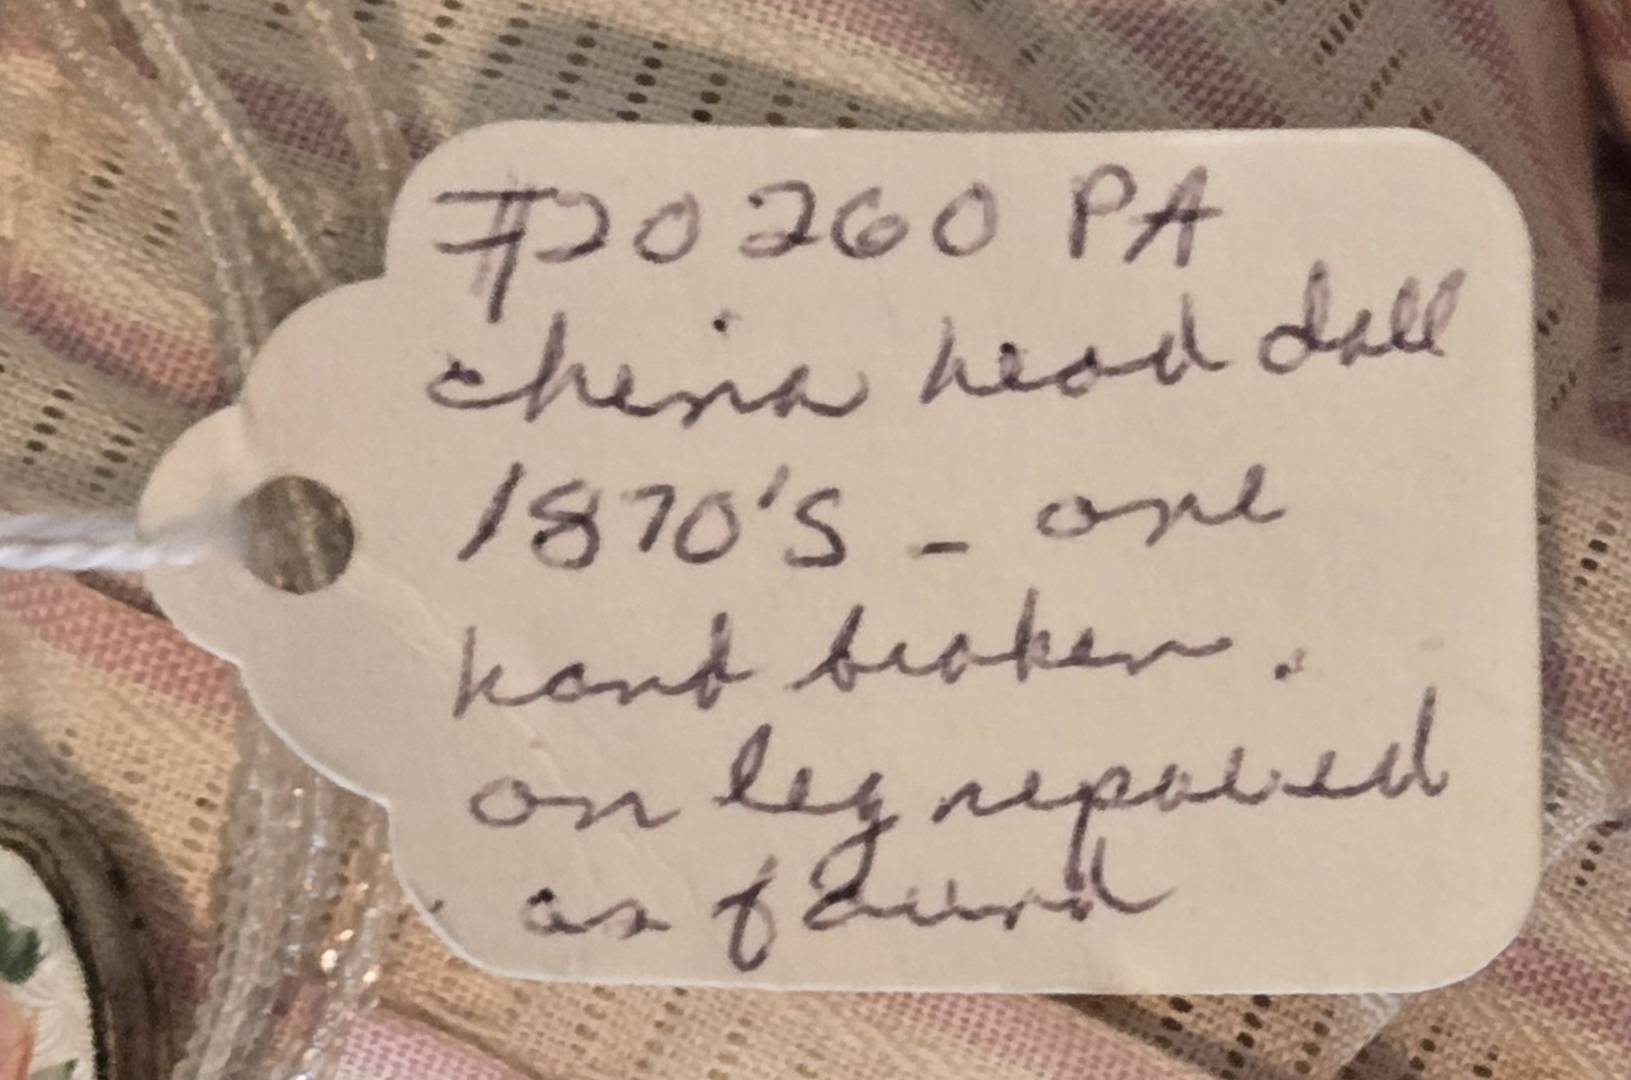 #20260 PA
china head doll
1870's - one
hand broken.
on leg repaired
as found